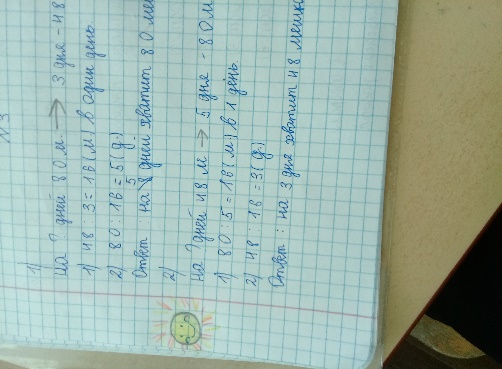 N3
1)
На ? дней 80 м. → 3 дня - 48
1) 48 : 3 = 16 (м) в один день
2) 80 : 16 = 5 (д.)
Ответ на 5 дней хватит 80 меш
2)
На ? дней 48 м → 5 дня - 80 м
1) 80 : 5 = 16 (м) в 1 день.
2) 48 : 16 = 3 (д.)
Ответ : на 3 дня хватит 48 мешк